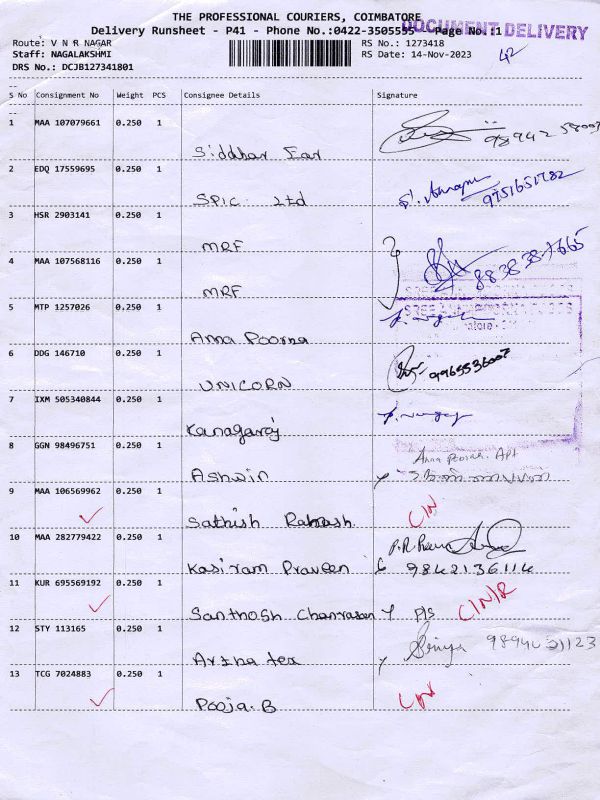 THE PROFESSIONAL COURIERS, COIMBATORE
DOCUMENT DELIVERY
Delivery Runsheet - P41 - Phone No.:0422-3505555 Page No.:1
Route: V N R NAGAR RS No.: 1273418
Staff: NAGALAKSHMI RS Date: 14-Nov-2023
DRS No.: DCJB127341801
S No Consignment No Weight PCS Consignee Details Signature
1 MAA 107079661 0.250 1
Siddhar Ear
2 EDQ 17559695 0.250 1
SPIC Ltd 9751651782
3 HSR 2903141 0.250 1
MRF
4 MAA 107568116 0.250 1
MRF
5 MTP 1257026 0.250 1
Anna Poorna
6 DDG 146710 0.250 1
UNICORN 9965536007
7 IXM 505340844 0.250 1
Kanagaraj
8 GGN 98496751 0.250 1 Anna Poorna Apt
Ashwin
9 MAA 106569962 0.250 1
Sathish
10 MAA 282779422 0.250 1
Kasiram Praveen 9842136114
11 KUR 695569192 0.250 1
Santhosh P/S
12 STY 113165 0.250 1
Artha tex
13 TCG 7024883 0.250 1
Pooja.B